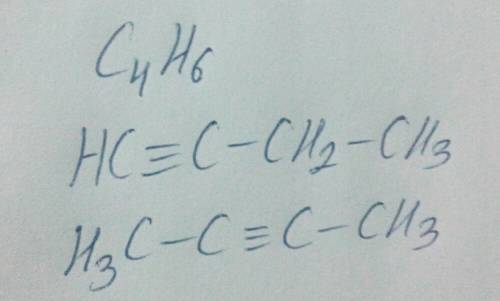 C₄H₆
HC≡C-CH₂-CH₃
H₃C-C≡C-CH₃